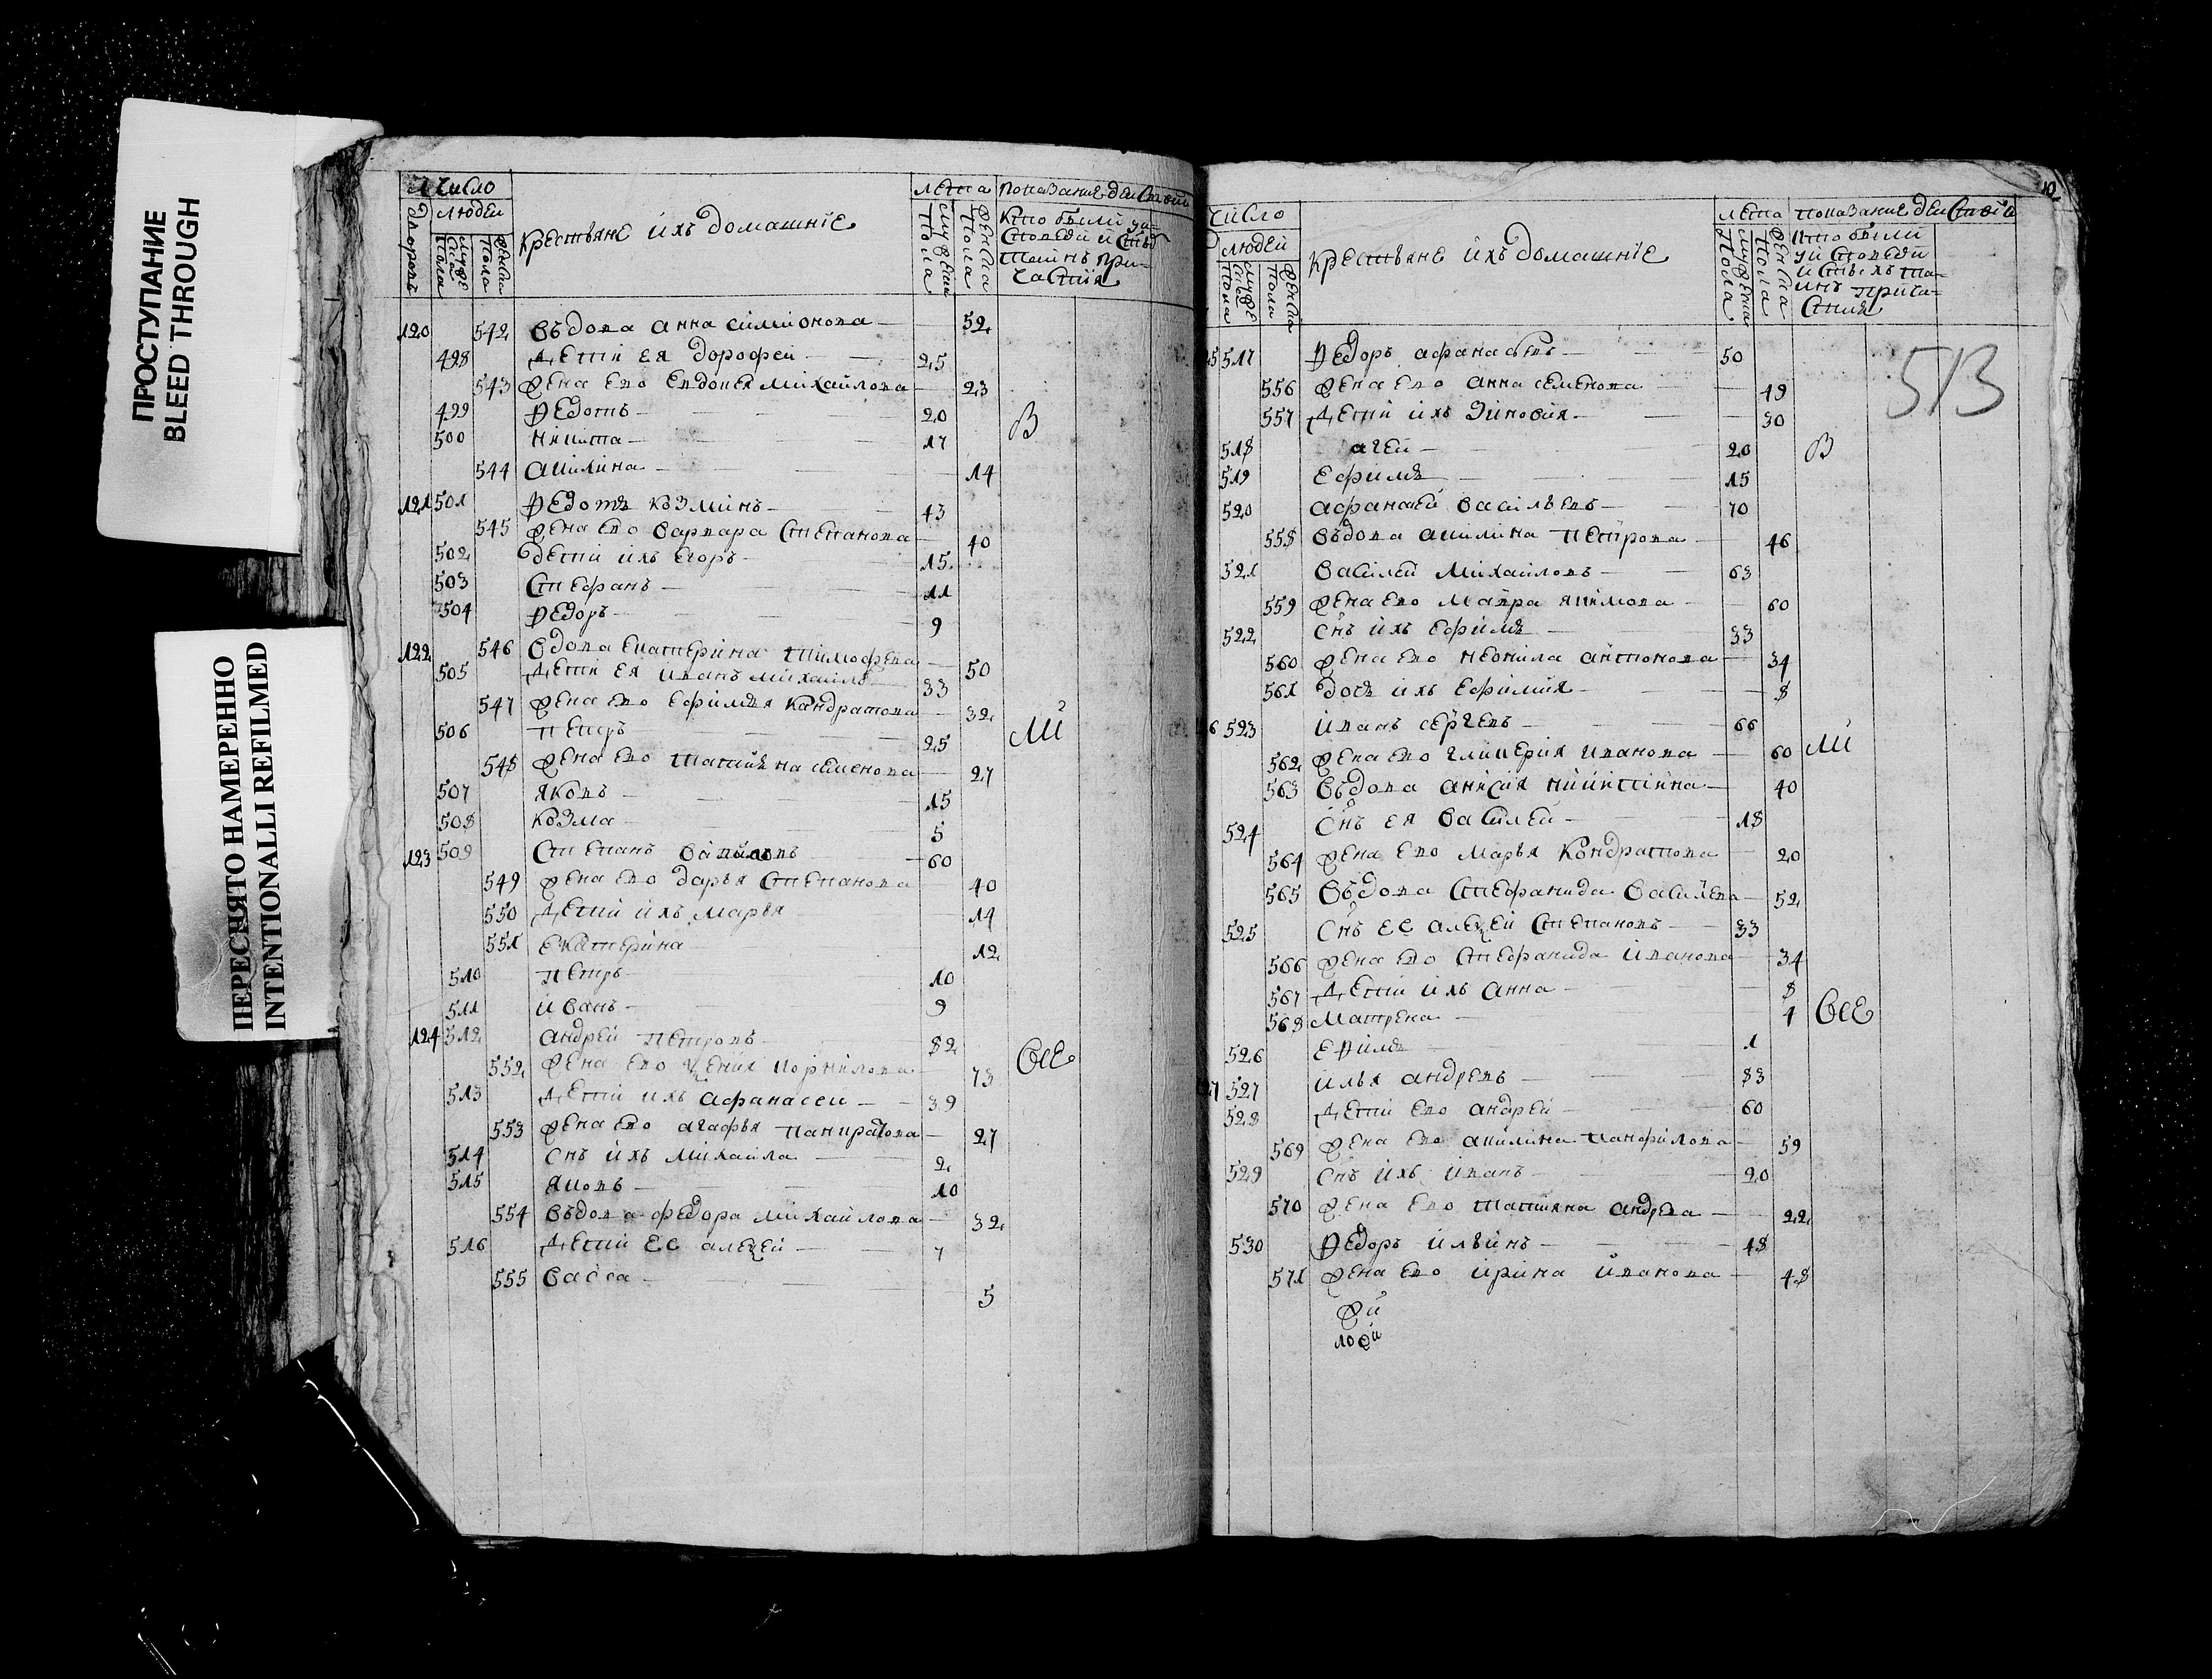 ПРОСТУПАНИЕ
BLEED THROUGH
ПЕРЕСНЯТО НАМЕРЕННО
INTENTIONALLI REFILMED
Число
людей
Крестьяне ихъ домашніе
лета
показание действій
120 542 въдова анна симионова 52
498 дети ея дорофеи 25
543 жена ево евдокея михайлова 23
499 Федотъ 20
500 никита 17 В
544 акилина 14
121 501 Федотъ козминъ 43
545 жена ево варвара степанова 40
502 дети ихъ егоръ 15
503 стефанъ 11
504 Федоръ 9
122 546 вдова екатерина тимофева 50
505 дети ея иванъ михаилъ 33
547 жена ево ефимья кандратова 32
506 петръ 25 МИ
548 жена ево татияна семенова 27
507 яковъ 15
508 козма 5
123 509 степанъ 60
549 жена ево дарья степанова 40
550 дети ихъ марья 14
551 екатерина 12
510 петръ 10
511 иванъ 9
124 512 андрей петровъ 82
552 жена ево корнилова 73 все
513 дети ихъ афанасеи 39
553 жена ево агафья панкратова 27
514 снъ ихъ михаила 2
515 яковъ 10
554 въдова федора михаилова 32
516 дети ее алеѯей 7
555 васса 5
10
число
людей
Крестьяне ихъ домашніе
лета
показание действіи
513
517 Федоръ афанасьевъ 50
556 жена ево анна семенова 49
557 дети ихъ зиновия 30
518 агей 20 В
519 ефимъ 15
520 афанасей василъевъ 70
558 въдова акилина петрова 46
521 василей михаиловъ 63
559 жена ево мавра якимова 60
522 снъ ихъ ефимъ 33
560 жена ево неонила антонова 34
561 дочь ихъ ефимия 8
6 523 иванъ сергеевъ 66
562 жена ево гликерия иванова 60 МИ
563 въдова анисия никитина 40
524 снъ ея василей 18
564 жена ево марья кондратова 20
565 въдова стефанида василева 52
525 снъ ее алеѯей степановъ 33
566 жена ево стефанида иванова 34
567 дети ихъ анна 8
568 матрена 1 все
526 ефимъ 1
7 527 илья андревъ 83
528 дети ево андрей 60
569 жена ево акилина панфилова 59
529 снъ ихъ иванъ 20
570 жена ево татияна андрева 22
530 Федоръ ильинъ 48
571 жена ево ирина иванова 48